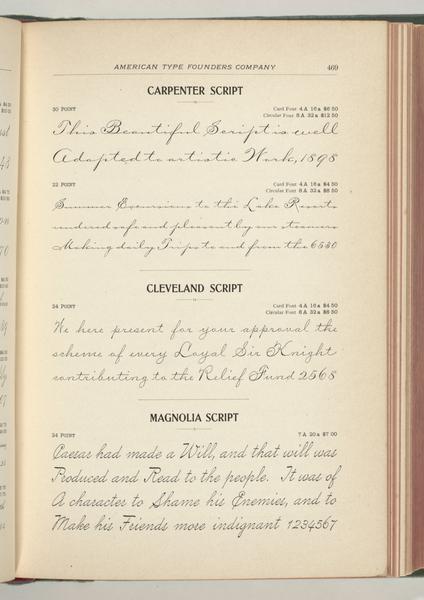 AMERICAN TYPE FOUNDERS COMPANY 469
CARPENTER SCRIPT
30 POINT Card Font 4 A 16 a $6 50
Circular Font 8 A 32 a $12 50
This Beautiful Script is well
Adapted to artistic Work, 1898
22 POINT Card Font 4 A 16 a $4 50
Circular Font 8 A 32 a $8 50
Summer Excursions to the Lake Resorts
rendered safe and pleasant by our steamers
Making daily Trips to and from the 6530
CLEVELAND SCRIPT
24 POINT Card Font 4 A 16 a $4 50
Circular Font 6 A 32 a $6 50
We here present for your approval the
scheme of every Loyal Sir Knight
contributing to the Relief Fund 2568
MAGNOLIA SCRIPT
24 POINT 7 A 20 a $7 00
Caesar had made a Will, and that will was
Produced and Read to the people. It was of
A character to Shame his Enemies, and to
Make his Friends more indignant 1234567